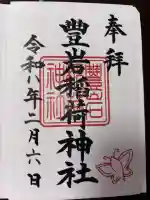 奉拝
豐岩稲荷神社
令和八年二月六日